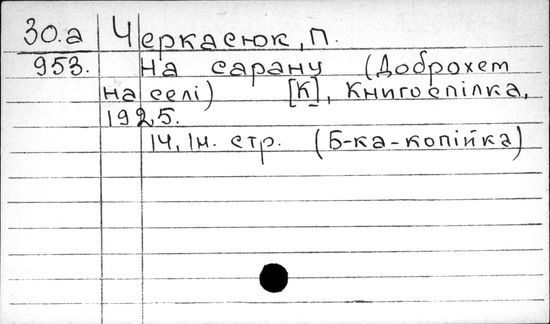 30.а Черкасюк, П.
953. На сарану (Доброхем
на селі) [К], Книгоспілка,
1925.
14, 1н. стр. (Б-ка-копійка)